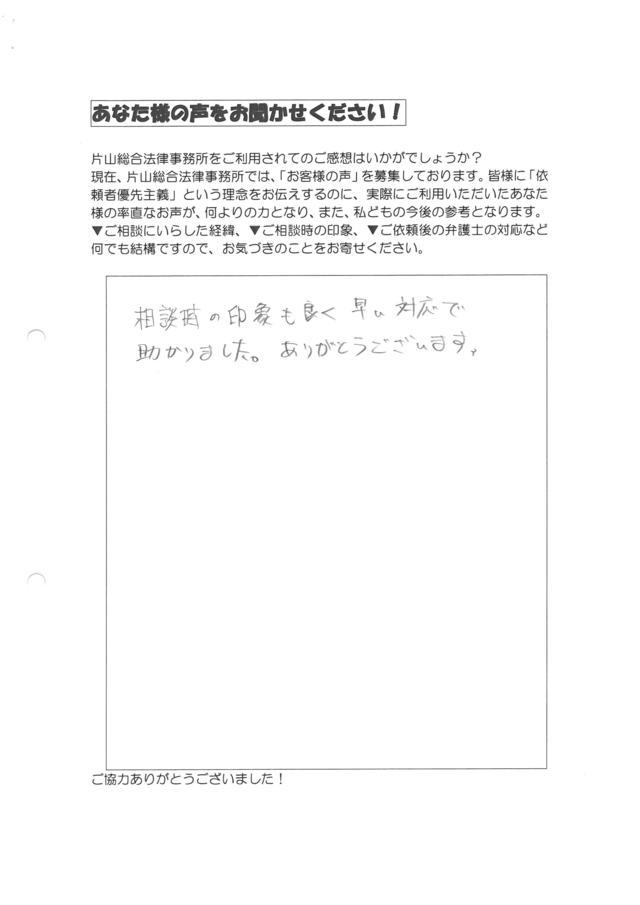 あなた様の声をお聞かせください！
片山総合法律事務所をご利用されてのご感想はいかがでしょうか？
現在、片山総合法律事務所では、「お客様の声」を募集しております。皆様に「依
頼者優先主義」という理念をお伝えするのに、実際にご利用いただいたあなた
様の率直なお声が、何よりの力となり、また、私どもの今後の参考となります。
▼ご相談にいらした経緯、▼ご相談時の印象、▼ご依頼後の弁護士の対応など
何でも結構ですので、お気づきのことをお寄せください。
相談時の印象も良く早い対応で
助かりました。ありがとうございます。
ご協力ありがとうございました！